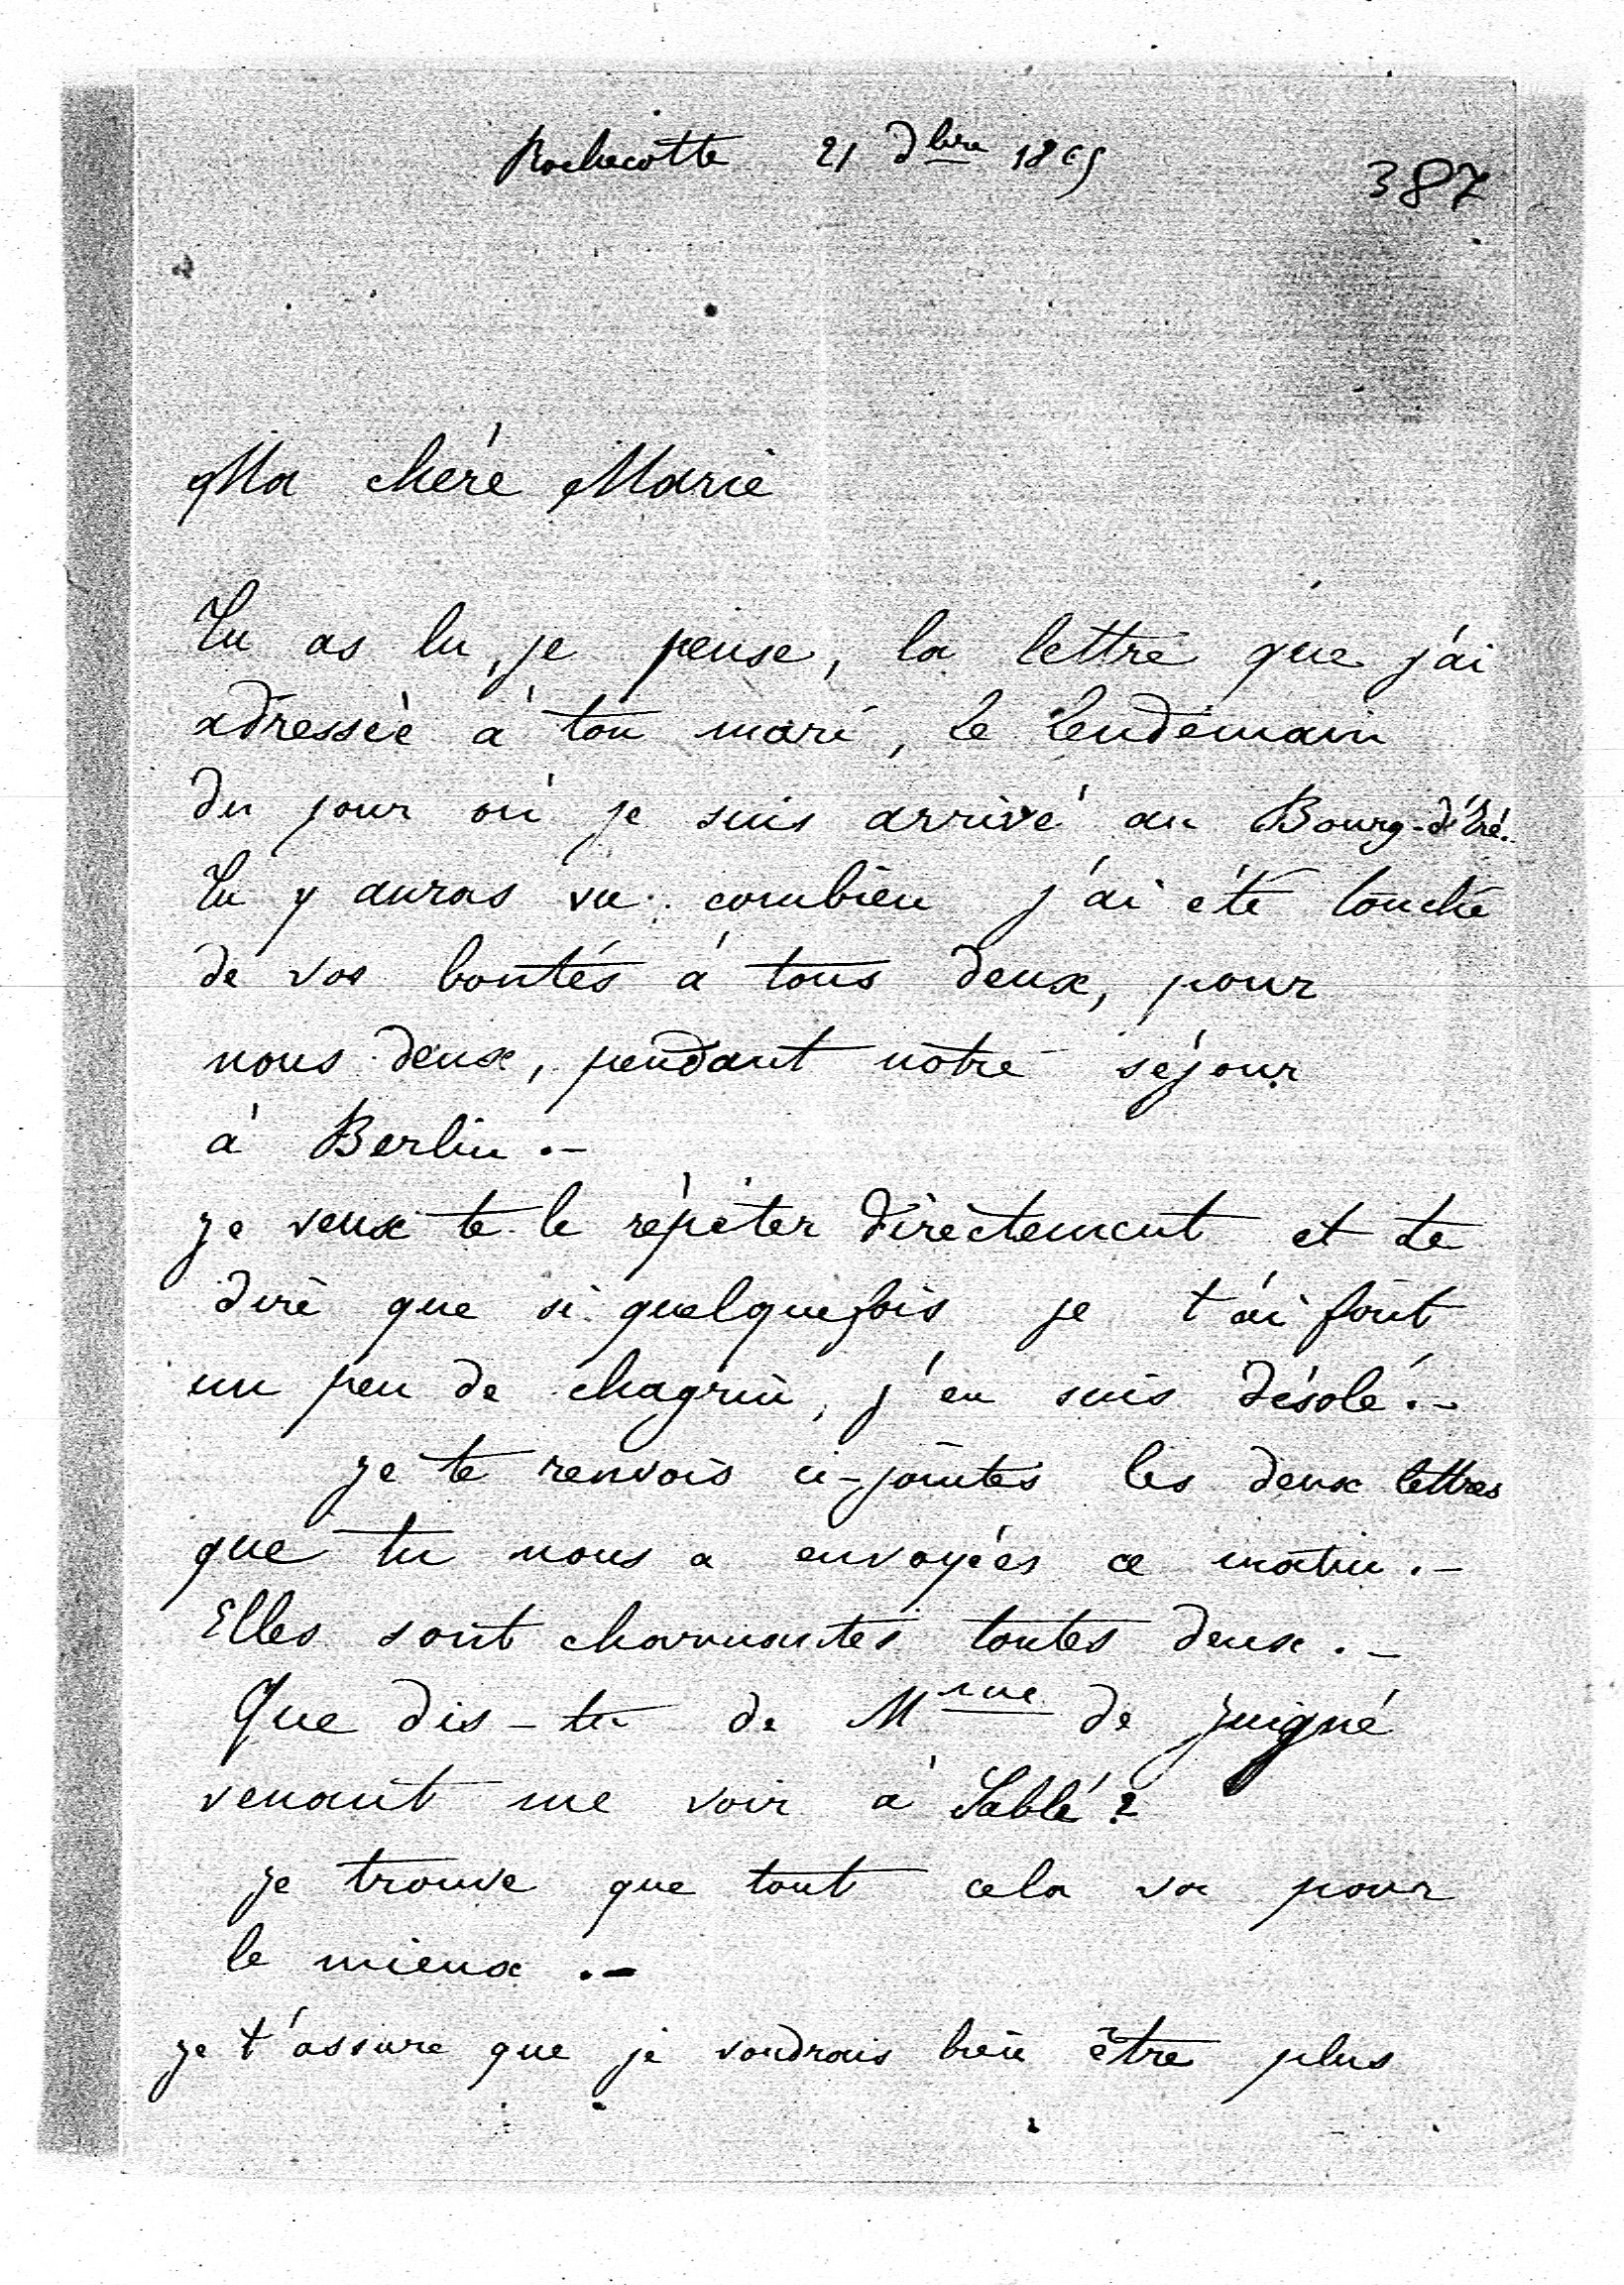 Rochecotte 21 Xbre 1865
387
Ma chère Marie
Tu as lu, je pense, la lettre que j'ai
adressée à ton mari, le lendemain
du jour où je suis arrivé au Bourg-d'Iré.
Tu y auras vu combien j'ai été touché
de vos bontés à tous deux, pour
nous deux, pendant notre séjour
à Berlin.-
Je veux te le répéter directement et te
dire que si quelquefois je t'ai fait
un peu de chagrin, j'en suis désolé.-
Je te renvois ci-jointes les deux lettres
que tu nous a envoyées ce matin.-
Elles sont charmantes toutes deux.-
Que dis-tu de Mme de Juigné
venant me voir à Sablé?
Je trouve que tout cela va pour
le mieux.-
Je t'assure que je voudrais bien être plus